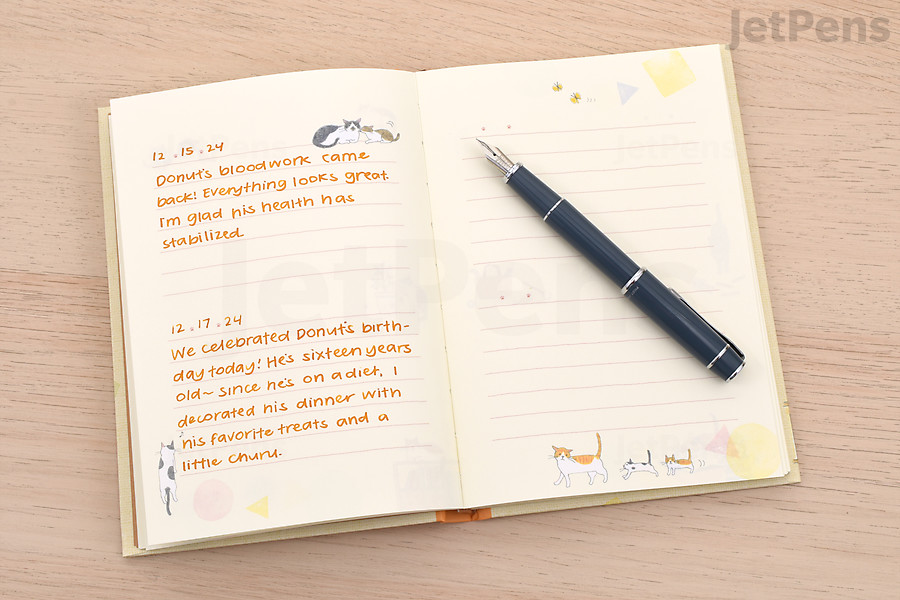 JetPens
12.15.24
Donut's bloodwork came
back! Everything looks great.
I'm glad his health has
stabilized.
12.17.24
We celebrated Donut's birth-
day today! He's sixteen years
old~ since he's on a diet, I
decorated his dinner with
his favorite treats and a
little Churu.
JetPens